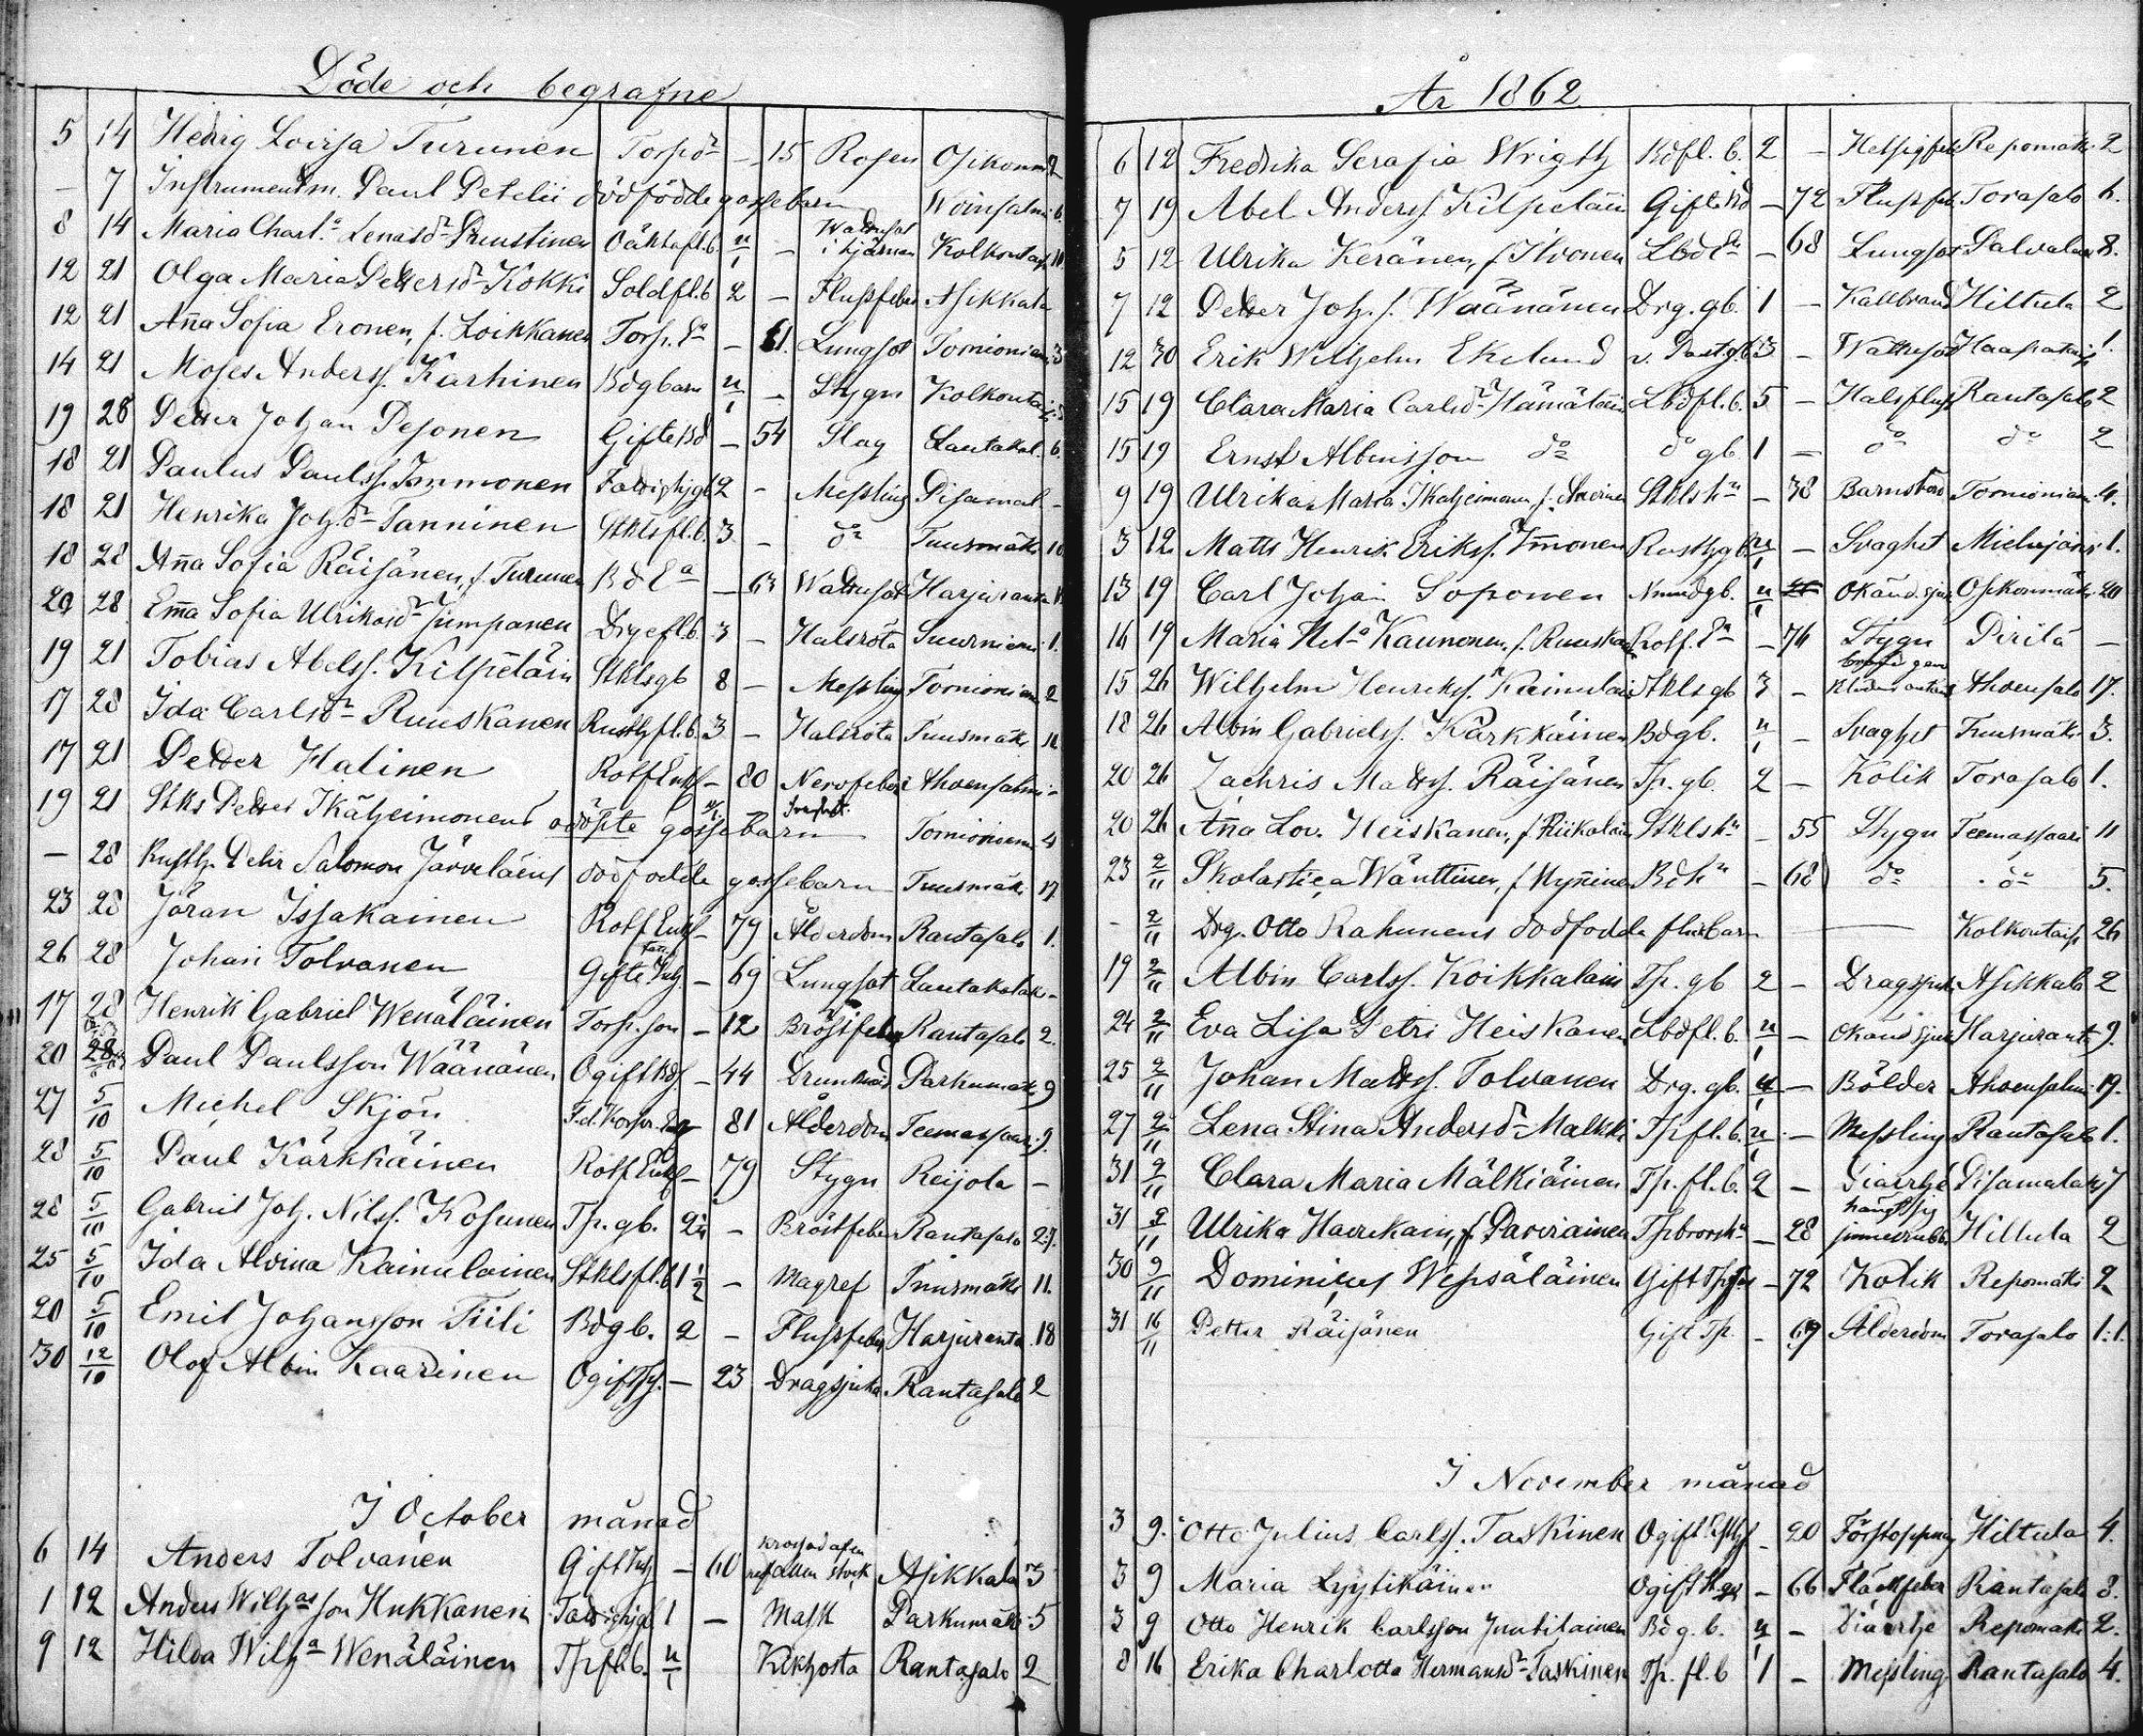 Döde och begrafne
5 14 Hedvig Lovisa Turunen Torpdr - 15 Rosen Osikonm 2
- 7 Instrumentm. Paul Petelii dödfödde gossebarn Woinsalmi 6.
8 14 Maria Charl.a Lenasdr Ruustinen fl.b. u/1 - Wattusot i hjärnan Kolkontaip 11
12 21 Olga Maria Pettersdr Kokki Soldfl.b 2 - Flussfeber Asikkala
12 21 Anna Sofia Eronen, f. Loikkanen Torp. Ea - 61. Lungsot Tornioniemi 3
14 21 Moses Anderss. Karhinen Bdgbarn u/1 - Stygn Kolkontaip
19 28 Petter Johan Pesonen Gifte Bd - 54 Slag Lautakal. 6.
18 21 Paulus Paulss. Immonen 2 - Messling Pisamal -
18 21 Henrika Joh.dr Tanninen Stklsfl.b. 3 - do Tuusmäki 10
18 28 Anna Sofia Räisänen, f. Turunen Bd Ea - 63 Wattusot Harjuranta
20 28 Emma Sofia Ulrikasdr Jumpanen fl.b. 3 - Halsröta Suurniemi 1.
19 21 Tobias Abelss. Kilpeläin Stklsgb 8 - Messling Tornioniemi 2
17 28 Ida Carlsdr Ruuskanen Rusthfl.b. 3 - Halsröta Tuusmäki 11
17 21 Petter Halinen Rotf Enkl - 80 Nervfeber Ahvensalmi -
19 21 Stks Petter Ikäheimonens odöpte gossebarn u/1 Svaghet Tornioniemi 4
- 28 Rusth. Petr Salomon Järveläins dödfödde gossebarn Tuusmäki 17
23 28 Jöran Issakainen Rotf Enkl - 79 Ålderdom Rantasalo 1.
26 28 Johan Tolvanen Gifte Inh. - 69 Lungsot Lautakotak -
17 28 Henrik Gabriel Wenäläinen Torp. son - 12 Bröstfeber Rantasalo 2.
20 28 Paul Paulsson Wäänänen Ogift Bds - 44 Drunknad Parkumäki 9
27 5/10 Michel Skjön F.d. Korpr. - 81 Ålderdom Teemassaari 9.
28 5/10 Paul Kärkkäinen Rotf Enkl - 79 Stygn Reijola -
28 5/10 Gabriel Joh. Nilss. Kosunen Tp. gb. - Bröstfeber Rantasalo 27.
25 5/10 Ida Alvina Kainulainen Stklsfl.b 1 1/2 - Magref Tuusmäki 11.
20 5/10 Emil Johansson Tiili Bdgb. 2 - Flussfeber Harjuranta 18
30 12/10 Olof Albin Kaarinen Ogift - 23 Dragsjuka Rantasalo 2
I October månad
6 14 Anders Tolvanen Gift Inh - 60 krossad af en nefallen stock Asikkala 3
1 12 Anders Wilhas son Hukkanen 1 - Mask Parkumäki 5
9 12 Hilda Wilha Wenäläinen Tpfl.b. u/1 Kikhosta Rantasalo 2
År 1862
6 12 Fredrika Serafia Wrigth Bdfl.b. 2 - Helsigfeb Repomäk. 2
7 19 Abel Anderss. Kilpeläin Gift Bd - 72 Flussfeb Torasalo 6.
5 12 Ulrika Keränen, f. Ikonen Lbd Ea - 68 Lungsot Palvalax 8.
7 12 Petter Joh. s. Wäänänen Drg. gb. 1 - Kallbrand Hiltula 2
12 30 Erik Wilhelm Ekelund v. Past.gb 3 - Wattusot Haapataip 1.
15 19 Clara Maria Carlsdr Hämäläin Lbdfl.b. 5 - Halsfluss Rantasalo 2
15 19 Ernst Albinsson do do gb. 1 - do do 2
9 19 Ulrika Maria Ikäheimonen, f. Stklsha - 38 Barnsbörd Tornioniem. 4.
3 12 Matts Henrik Erikss. Immonen Rusthgb. u/1 - Svaghet Mielusjärvi 1.
13 19 Carl Johan Soponen Nmndgb. u/1 Okänd sjuk Osikonmäki 20
16 19 Maria Hel.a Kaunonen, f. Ruuskan Rotf. Ea - 76 Stygn Pirilä -
15 26 Wilhelm Henrikss. Kainulain Stkls gb 3 - brand gen. klädnes antänd Ahvensalo 17.
18 26 Albin Gabrielss. Kärkkäinen Bdgb. u/1 - Svaghet Tuusmäki 3.
20 26 Zachris Mattss. Räisänen Tp. gb. 2 - Kolik Torasalo 1.
20 26 Anna Lov. Heiskanen, f. Riikalain Stklsha - 55 Stygn Teemassaari 11
23 2/11 Skolastica Wänttinen, f. Nyninen Bdha - 68 do do 5.
- 2/11 Drg. Otto Rahunens dödfödde flickbarn Kolkontaip 26
19 2/11 Albin Carlss. Koikkalain Tp. gb 2 - Dragsjuk. Asikkala 2
24 2/11 Eva Lisa Petri Heiskanen Lbdfl.b. u/1 - Okänd sjuk Harjurant 9.
25 2/11 Johan Mattss. Tolvanen Drg. gb. u/1 - Bölder Ahvensalmi 19.
27 2/11 Lena Stina Andersdr Malkki Tpfl.b. u/1 - Messling Rantasalo 1.
31 9/11 Clara Maria Mälkiäinen Tp. fl.b. 2 - Diarrhé Pisamalax 7
31 9/11 Ulrika Haverikain, f. Parviainen - 28 hängt sig Hiltula 2
30 9/11 Dominicus Wepsäläinen Gift - 72 Kolik Repomäki 2
31 16/11 Petter Räisänen Gift Tp. - 69 Ålderdom Torasalo 1:1.
I November månad
3 9. Otto Julius Carlss. Taskinen Ogift - 20 Förstoppning Hiltula 4.
3 9 Maria Lyytikäinen Ogift - 66 Fläckfeber Rantasalo 3.
3 9 Otto Henrik Carlsson Juutilainen Bd g. b. u/1 - Diarrhe Repomäki 2.
8 16 Erika Charlotta Hermansdr Taskinen Tp. fl.b 1 - Messling Rantasalo 4.